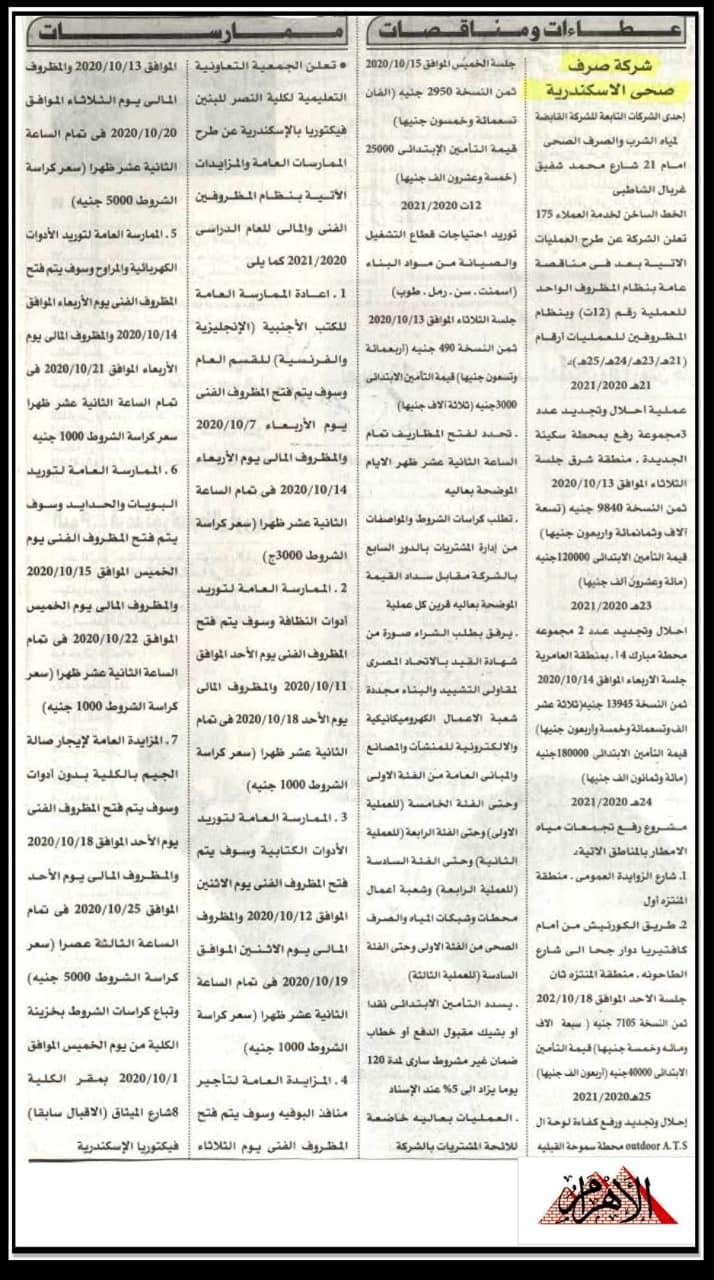 عطاءات ومناقصات
شركة صرف
صحى الاسكندرية
إحدى الشركات التابعة للشركة القابضة
لمياه الشرب والصرف الصحى
امام 21 شارع محمد شفيق
غربال الشاطبى
الخط الساخن لخدمة العملاء 175
تعلن الشركة عن طرح العمليات
الاتية بعد فى مناقصة
عامة بنظام المظروف الواحد
للعملية رقم (12ت) وبنظام
المظروفين للعمليات أرقام
(21هـ/23هـ/24هـ/25هـ).
21هـ 2021/2020
عملية أحلال وتجديد عدد
3مجموعة رفع بمحطة سكينة
الجديدة . منطقة شرق جلسة
الثلاثاء الموافق 2020/10/13
ثمن النسخة 9840 جنيه (تسعة
آلاف وثمانمائة واربعون جنيها)
قيمة التأمين الابتدائى 120000جنيه
(مائة وعشرون ألف جنيها)
23هـ 2021/2020
احلال وتجديد عدد 2 مجموعه
محطة مبارك 14. بمنطقة العامرية
جلسة الاربعاء الموافق 2020/10/14
ثمن النسخة 13945 جنيه(ثلاثة عشر
الف وتسعمائة وخمسة وأربعون جنيها)
قيمة التأمين الابتدائى 180000جنيه
(مائة وثمانون الف جنيها)
24هـ 2021/2020
مشروع رفع تجمعات مياه
الامطار بالمناطق الاتية،
1. شارع الزوايدة العمومى . منطقة
المنتزه أول
2. طريق الكورنيش من أمام
كافتيريا دوار جحا الى شارع
الطاحونه . منطقة المنتزه ثان
جلسة الاحد الموافق 202/10/18
ثمن النسخة 7105 جنيه ( سبعة الاف
ومائه وخمسة جنيها) قيمة التأمين
الابتدائى 40000جنيه (أربعون الف جنيها)
25هـ2021/2020
إحلال وتجديد ورفع كفاءة لوحة ال
outdoor A.T.S محطة سموحة القبليه
جلسة الخميس الموافق 2020/10/15
ثمن النسخة 2950 جنيه (الفان
تسعمائة وخمسون جنيها)
قيمة التأمين الإبتدائى 25000
(خمسة وعشرون الف جنيها)
12ت 2021/2020
توريد احتياجات قطاع التشغيل
والصيانة من مواد البناء
(اسمنت . سن . رمل . طوب)
جلسة الثلاثاء الموافق 2020/10/13
ثمن النسخة 490 جنيه (أربعمائة
وتسعون جنيها) قيمة التأمين الابتدائى
3000جنيه (ثلاثة آلاف جنيها)
. تحدد لفتح المظاريف تمام
الساعة الثانية عشر ظهر الايام
الموضحة بعاليه
. تطلب كراسات الشروط والمواصفات
من إدارة المشتريات بالدور السابع
بالشركة مقابل سداد القيمة
الموضحة بعاليه قرين كل عملية
. يرفق بطلب الشراء صورة من
شهادة القيد بالاتحاد المصرى
لمقاولى التشييد والبناء مجددة
شعبة الاعمال الكهروميكانيكية
والالكترونية للمنشآت والمصانع
والمبانى العامة من الفئة الاولى
وحتى الفئة الخامسة (للعملية
الاولى) وحتى الفئة الرابعة (للعملية
الثانية) وحتى الفئة السادسة
(للعملية الرابعة) وشعبة اعمال
محطات وشبكات المياه والصرف
الصحى من الفئة الاولى وحتى الفئة
السادسة (للعملية الثالثة)
. يسدد التأمين الابتدائى نقدا
أو بشيك مقبول الدفع أو خطاب
ضمان غير مشروط سارى لمدة 120
يوما يزاد الى 5% عند الإسناد
. العمليات بعاليه خاضعة
للائحة المشتريات بالشركة
ممارسات
• تعلن الجمعية التعاونية
التعليمية لكلية النصر للبنين
فيكتوريا بالإسكندرية عن طرح
الممارسات العامة والمزايدات
الآتية بنظام المظروفين
الفنى والمالى للعام الدراسى
2021/2020 كما يلى
1 . اعادة الممارسة العامة
للكتب الأجنبية (الإنجليزية
والفرنسية) للقسم العام
وسوف يتم فتح المظروف الفنى
يوم الأربعاء 2020/10/7
والمظروف المالى يوم الأربعاء
2020/10/14 فى تمام الساعة
الثانية عشر ظهرا (سعر كراسة
الشروط 3000ج)
2 . الممارسة العامة لتوريد
أدوات النظافة وسوف يتم فتح
المظروف الفنى يوم الأحد الموافق
2020/10/11 والمظروف المالى
يوم الأحد 2020/10/18 فى تمام
الثانية عشر ظهرا (سعر كراسة
الشروط 1000 جنيه)
3 . الممارسة العامة لتوريد
الأدوات الكتابية وسوف يتم
فتح المظروف الفنى يوم الاثنين
الموافق 2020/10/12 والمظروف
المالى يوم الاثنين الموافق
2020/10/19 فى تمام الساعة
الثانية عشر ظهرا (سعر كراسة
الشروط 1000 جنيه)
4 . المزايدة العامة لتأجير
منافذ البوفيه وسوف يتم فتح
المظروف الفنى يوم الثلاثاء
الموافق 2020/10/13 والمظروف
المالى يوم الثلاثاء الموافق
2020/10/20 فى تمام الساعة
الثانية عشر ظهرا (سعر كراسة
الشروط 5000 جنيه)
5 . الممارسة العامة لتوريد الأدوات
الكهربائية والمراوح وسوف يتم فتح
المظروف الفنى يوم الأربعاء الموافق
2020/10/14 والمظروف المالى يوم
الأربعاء الموافق 2020/10/21 فى
تمام الساعة الثانية عشر ظهرا
سعر كراسة الشروط 1000 جنيه
6 . الممارسة العامة لتوريد
البويات والحدايد وسوف
يتم فتح المظروف الفنى يوم
الخميس الموافق 2020/10/15
والمظروف المالى يوم الخميس
الموافق 2020/10/22 فى تمام
الساعة الثانية عشر ظهرا (سعر
كراسة الشروط 1000 جنيه)
7 . المزايدة العامة لإيجار صالة
الجيم بالكلية بدون أدوات
وسوف يتم فتح المظروف الفنى
يوم الأحد الموافق 2020/10/18
والمظروف المالى يوم الأحد
الموافق 2020/10/25 فى تمام
الساعة الثالثة عصرا (سعر
كراسة الشروط 5000 جنيه)
وتباع كراسات الشروط بخزينة
الكلية من يوم الخميس الموافق
2020/10/1 بمقر الكلية
8شارع الميثاق (الاقبال سابقا)
فيكتوريا الإسكندرية
الأهرام